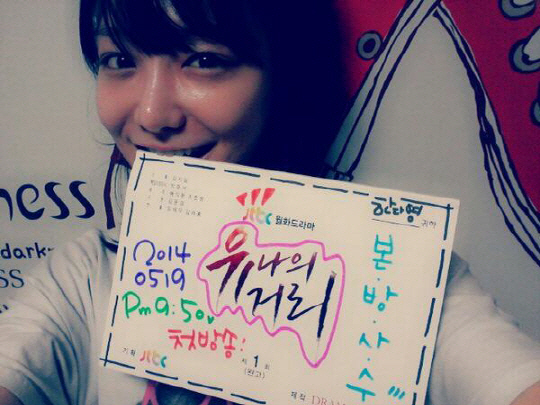 ness
dark-
SS
jtbc 월화드라마
한다영 귀하
유나의
거리
2014
0519
Pm 9:50
첫방송!
본·방·사·수
기획 jtbc
제 1 회
(완고)
제작 DRAM